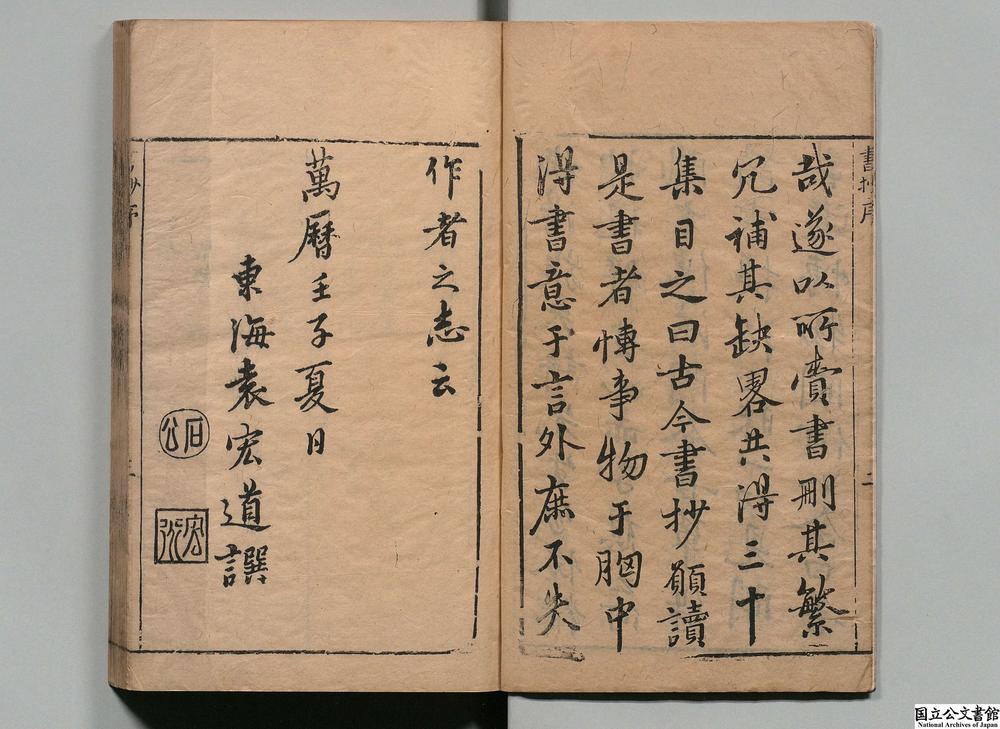 書抄序
二
哉遂以所賣書刪其繁
冗補其缺畧共得三十
集目之曰古今書抄願讀
是書者慱事物于胸中
淂書意于言外庶不失
作者之志云
萬曆壬子夏日
東海袁宏道譔
石公
宏道
国立公文書館
National Archives of Japan